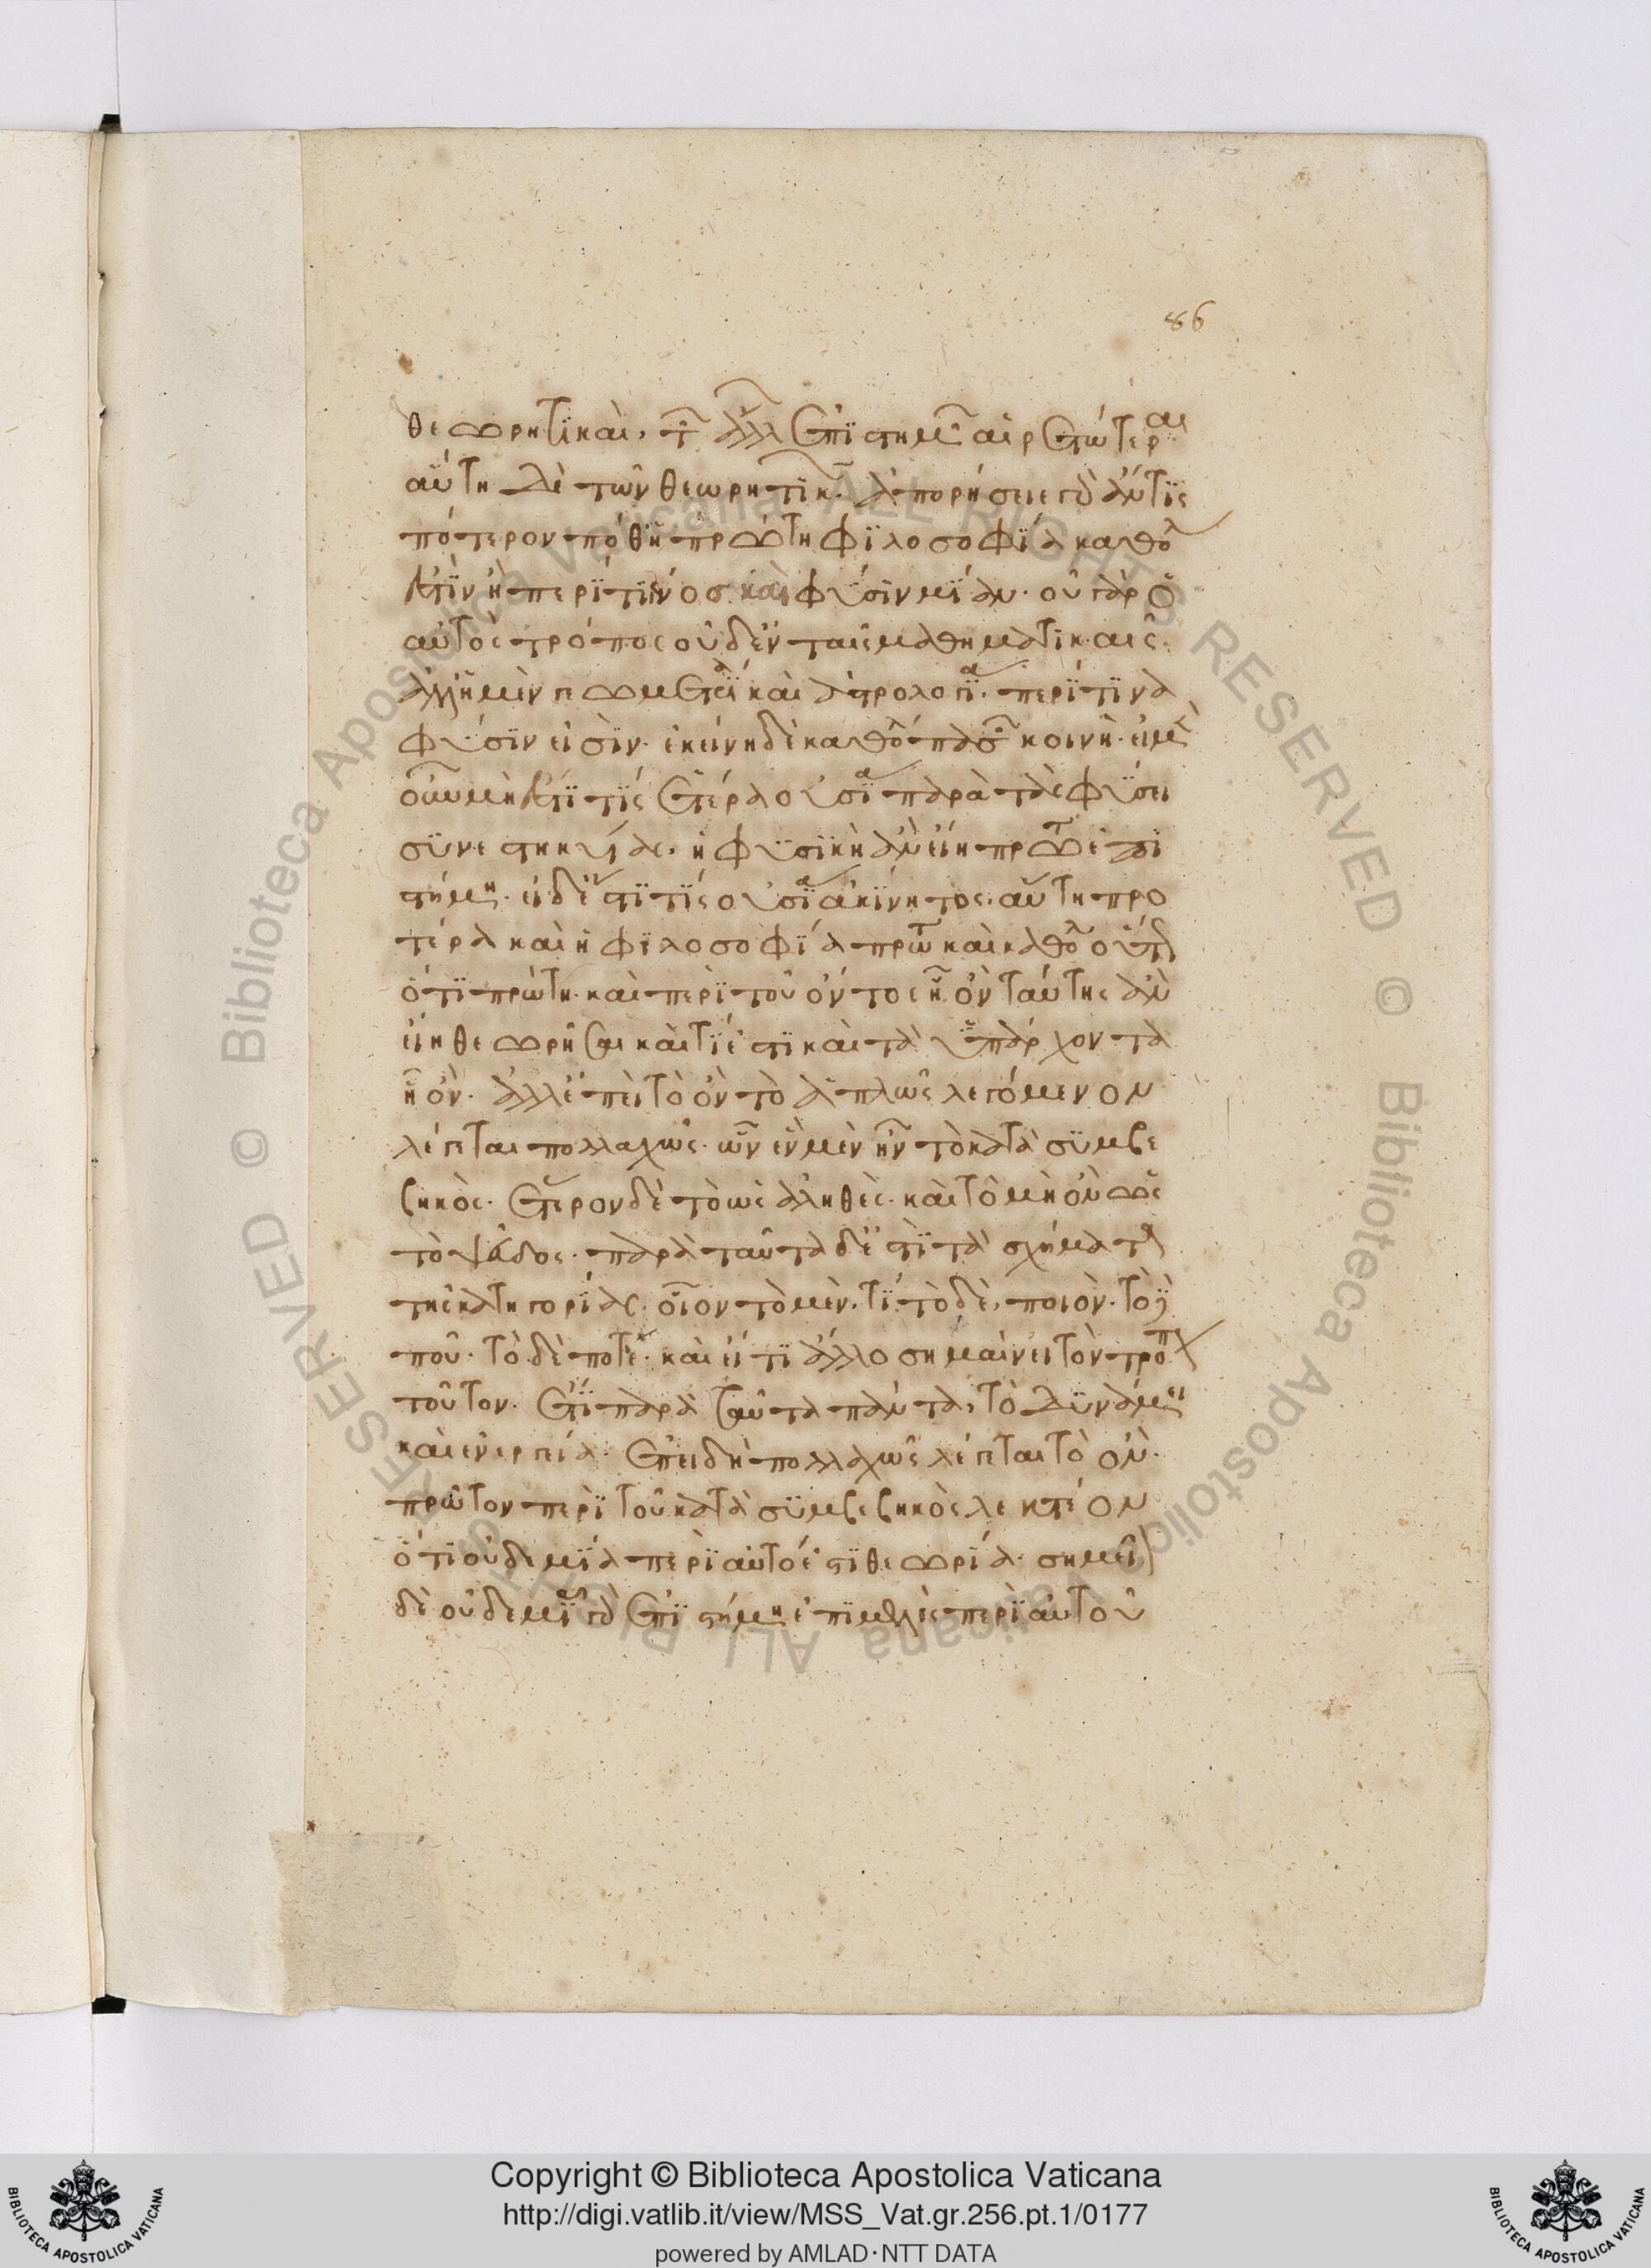 86
θεωρητικαὶ, τῶν ἄλλων ἐπιστημῶν αἱρετώτεραι
αὕτη δὲ τῶν θεωρητικῶν. ἀπορήσειε γὰρ ἄν τις
πότερον ποθ' ἡ πρώτη φϊλοσοφΐα καθόλου
ἐστὶν ἢ περΐ τι γένος καὶ φύσιν μΐαν. οὐ γὰρ ὁ
αὐτὸς τρόπος οὐδ' ἐν ταῖς μαθηματικαῖς.
ἀλλ' ἡ μὲν γεωμετρία καὶ ἀστρολογΐα. περΐ τινα
φύσϊν εἰσὶν. ἐκείνη δὲ καθόλου πασῶν κοινή. εἰ μὲν
οὖν μὴ ἐστΐ τις ἑτέρα οὐσΐα παρὰ τὰς φύσει
συνεστηκυΐας, ἡ φυσϊκὴ ἂν εἴη πρώτη ἐπι
στήμη. εἰ δ' ἔστι τις οὐσΐα ἀκίνητος. αὕτη προ
τέρα καὶ ἡ φϊλοσοφΐα πρώτη καὶ καθόλου οὕτως
ὅτϊ πρώτη. καὶ περὶ τοῦ ὄντος ᾗ ὂν ταύτης ἂν
εἴη θεωρῆσαι καὶ τΐ ἐστι καὶ τὰ ὑπάρχοντα
ᾗ ὄν. ἀλλ' ἐπεὶ τὸ ὂν τὸ ἁπλῶς λεγόμενον
λέγεται πολλαχῶς. ὧν ἓν μὲν ἦν τὸ κατὰ συμβε
βηκὸς. ἕτερον δὲ τὸ ὡς ἀληθὲς. καὶ τὸ μὴ ὂν ὡς
τὸ ψεῦδος. παρὰ ταῦτα δ' ἐστὶ τὰ σχήματα
τῆς κατηγορίας. οἷον τὸ μὲν. τΐ. τὸ δὲ, ποιὸν. τὸ δὲ
ποῦ. τὸ δὲ ποτὲ. καὶ εἴ τϊ ἄλλο σημαίνει τὸν τρόπον
τοῦτον. ἔτι παρὰ ταῦτα πάντα, τὸ δυνάμει
καὶ ἐνεργεία. ἐπειδὴ πολλαχῶς λέγεται τὸ ὂν.
πρῶτον περὶ τοῦ κατὰ συμβεβηκὸς λεκτέον
ὅτι οὐδεμΐα περὶ αὐτό ἐστϊ θεωρΐα. σημεῖον
δὲ οὐδεμΐα γὰρ ἐπιστήμη ἐπιμελὲς περὶ αὐτοῦ
Copyright © Biblioteca Apostolica Vaticana
http://digi.vatlib.it/view/MSS_Vat.gr.256.pt.1/0177
powered by AMLAD·NTT DATA
BIBLIOTECA APOSTOLICA VATICANA
BIBLIOTECA APOSTOLICA VATICANA
© Biblioteca Apostolica Vaticana ALL RIGHTS RESERVED © Biblioteca Apostolica Vaticana ALL RIGHTS RESERVED